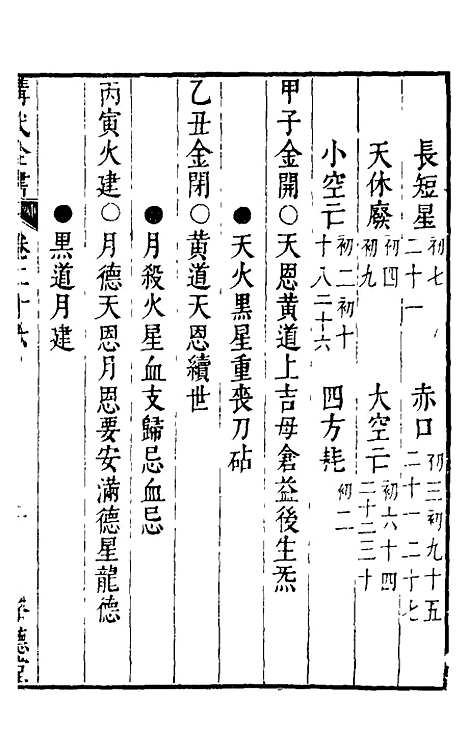 長短星 初七 二十一 赤口 初三 初九 十五 二十一 二十七
天休廢 初四 初九 大空亡 初六 十四 二十二 三十
小空亡 初二 初十 十八 二十六 四方耗 初二
甲子金開○天恩黃道上吉母倉益後生炁
●天火黑星重喪刀砧
乙丑金閉○黃道天恩續世
●月殺火星血支歸忌血忌
丙寅火建○月德天恩月恩要安滿德星龍德
●黑道月建
卷二十六